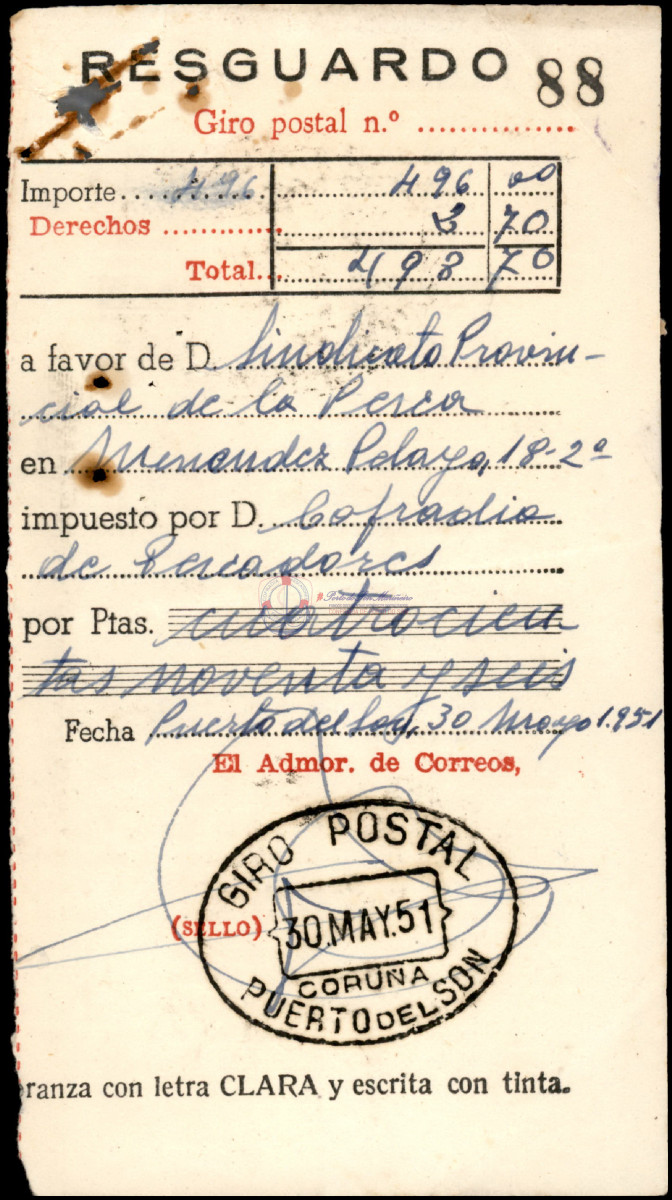 RESGUARDO 88
Giro postal n.º ...............
Importe.... 496 496 00
Derechos ............. 2 70
Total... 498 70
a favor de D. Sindicato Provin-
cial de la Pesca
en Menendez Pelayo, 18-2º
impuesto por D. Cofradia
de Pescadores
por Ptas. cuatrocien
tas noventa y seis
Fecha Puerto del Son, 30 Mayo 1.951
El Admor. de Correos,
GIRO POSTAL
(SELLO)
30.MAY.51
CORUÑA
PUERTO DEL SON
ranza con letra CLARA y escrita con tinta.